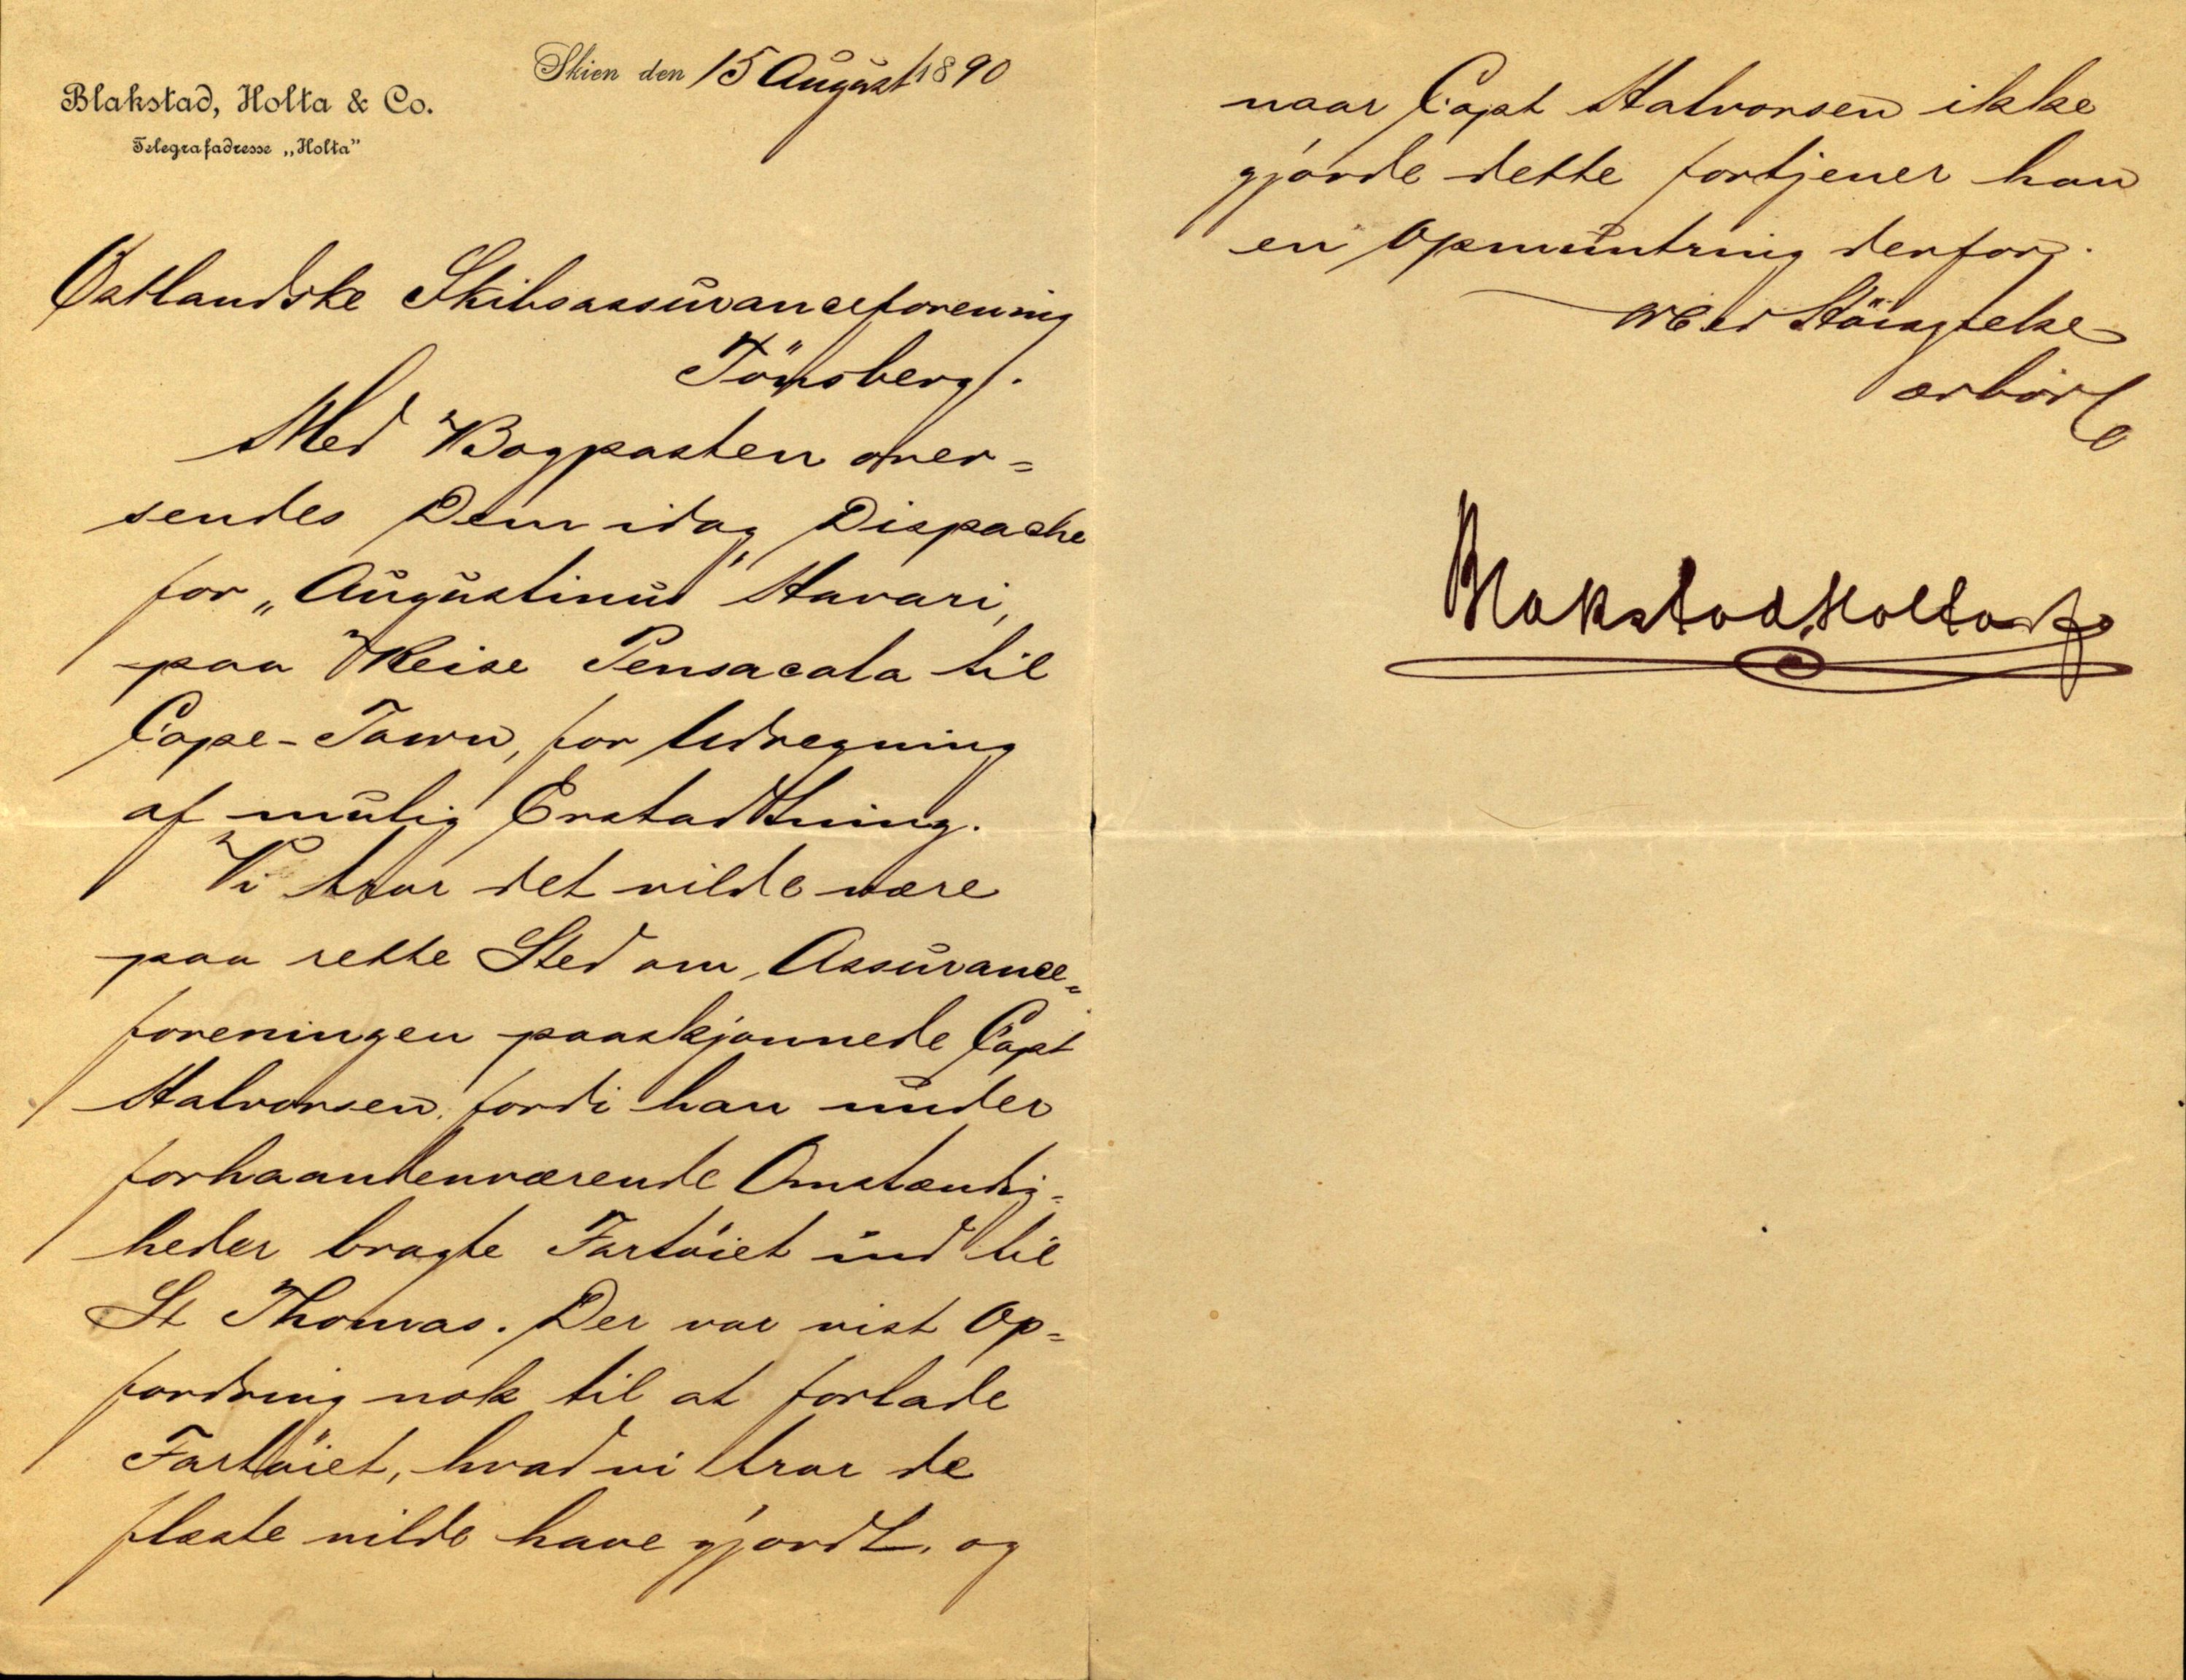 Skien den 15 August 1890
Blakstad, Holta & Co.
Telegrafadresse „Holta"
Østlandske Skibsassuranceforening
Tönsberg.
Med Bogposten over=
sendes Dem idag Dispache
for „Augustinus" Havari,
paa Reise Pensacola til
Cape-Town, for Udregning
af mulig Erstadtning.
Vi tror det vilde være
paa rette Sted om Assurance=
foreningen paaskjønnede Capt
Halvorsen, fordi han under
forhaandenværende Omstændig=
heder bragte Fartöiet ind til
St Thomas. Der var vist Op=
fordring nok til at forlade
Fartöiet, hvad vi tror de
fleste vilde have gjordt, og
naar Capt Halvorsen ikke
gjorde dette fortjener han
en Opmuntring derfor.
Med Höiagtelse
ærbödl
Blakstad, Holta & Co